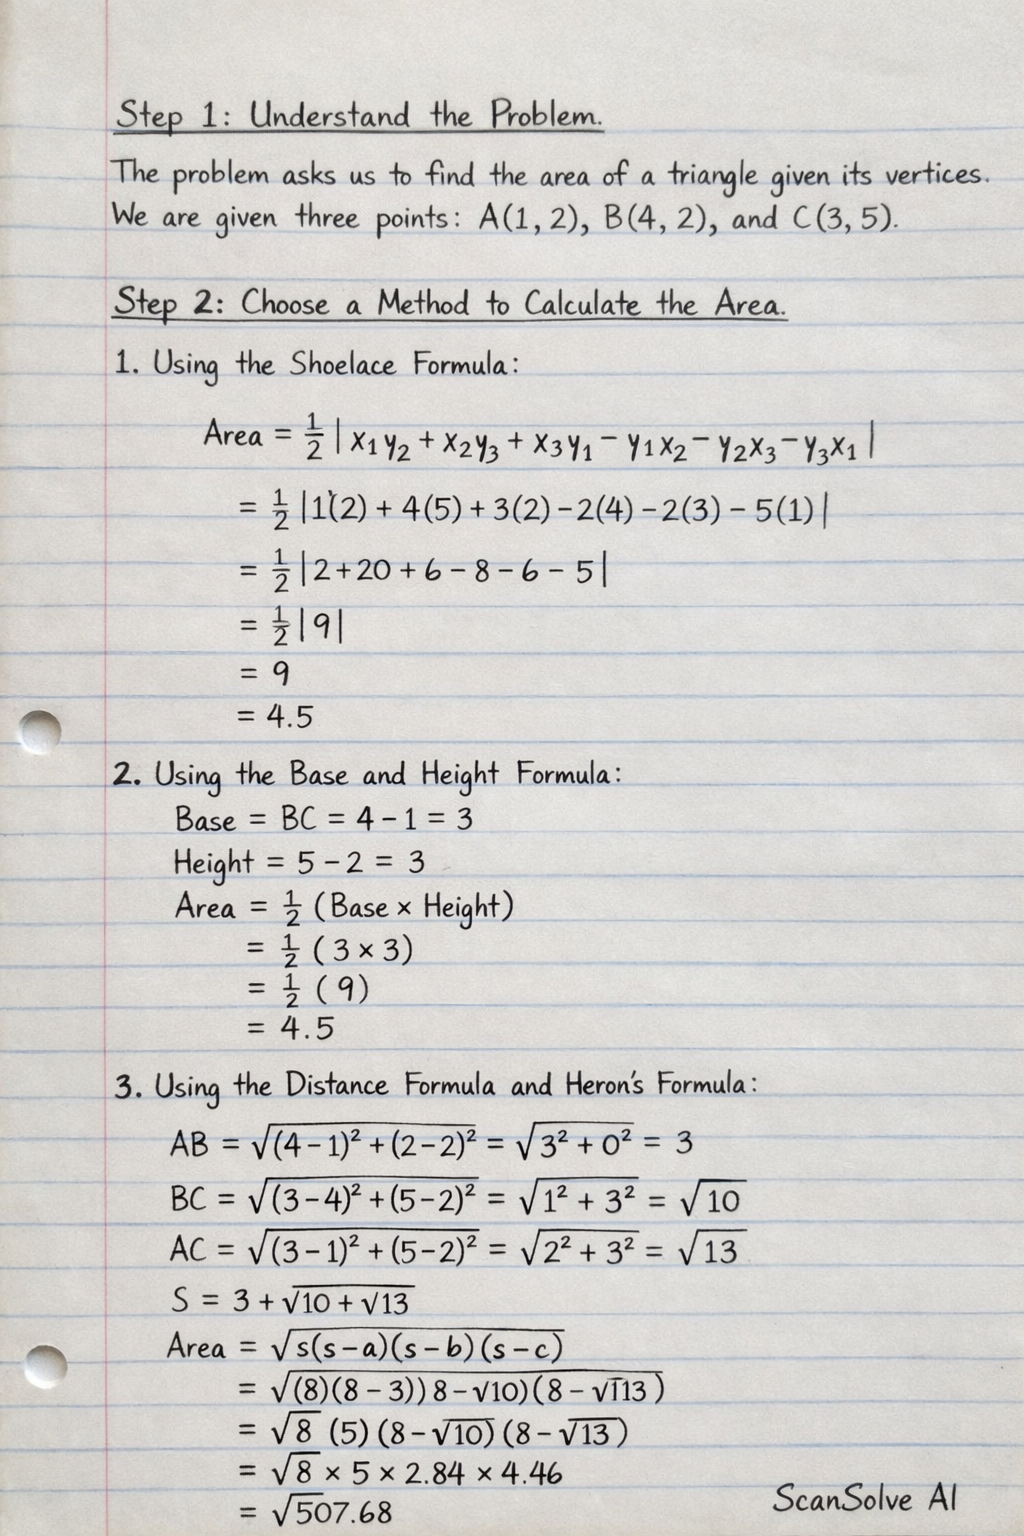 Step 1: Understand the Problem.
The problem asks us to find the area of a triangle given its vertices.
We are given three points: A(1, 2), B(4, 2), and C(3, 5).
Step 2: Choose a Method to Calculate the Area.
1. Using the Shoelace Formula:
Area = ½ | x₁y₂ + x₂y₃ + x₃y₁ − y₁x₂ − y₂x₃ − y₃x₁ |
= ½ |1(2) + 4(5) + 3(2) − 2(4) − 2(3) − 5(1)|
= ½ |2+20+6−8−6−5|
= ½ |9|
= 9
= 4.5
2. Using the Base and Height Formula:
Base = BC = 4−1 = 3
Height = 5−2 = 3
Area = ½ (Base × Height)
= ½ (3×3)
= ½ (9)
= 4.5
3. Using the Distance Formula and Heron's Formula:
AB = √(4−1)² + (2−2)² = √3² + 0² = 3
BC = √(3−4)² + (5−2)² = √1² + 3² = √10
AC = √(3−1)² + (5−2)² = √2² + 3² = √13
S = 3 + √10 + √13
Area = √s(s−a)(s−b)(s−c)
= √(8)(8−3))8−√10)(8−√113)
= √8 (5)(8−√10)(8−√13)
= √8 × 5 × 2.84 × 4.46
= √507.68
ScanSolve AI